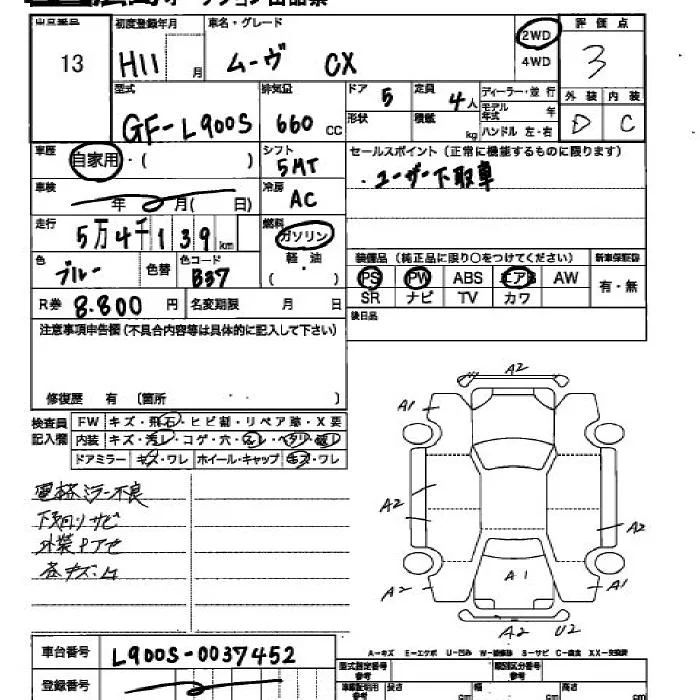 出品番号 13
初度登録年月 H11 月
車名・グレード ムーヴ CX
2WD
4WD
評価点 3
外装 内装
D C
型式 GF-L900S
排気量 660 cc
ドア 5
定員 4人
ディーラー・並行
形状
積載 kg
モデル年式 年
ハンドル 左・右
車歴 自家用・( )
シフト 5MT
セールスポイント(正常に機能するものに限ります)
・ユーザー下取車
車検 年 月( 日)
冷房 AC
走行 5万4千139km
燃料 ガソリン
軽・油
( )
色 ブルー 色替
色コード B37
装備品(純正品に限り○をつけてください)
新車保証書
PS PW ABS エアB AW
SR ナビ TV カワ
有・無
R券 8.800 円
名変期限 月 日
後日品
注意事項申告欄(不具合内容等は具体的に記入して下さい)
修復歴 有 〔箇所 〕
検査員記入欄
FW キズ・飛石・ヒビ割・リペア跡・X要
内装 キズ・汚レ・コゲ・穴・スレ・ヘタリ・破レ
ドアミラー キズ・ワレ ホイール・キャップ キズ・ワレ
電格ミラー不良
下廻りサビ
外装
各キズ・凹
A2
A1
A2
A2
A2
A1
A1
A2 U2
A-キズ E-エクボ U-凹み W-補修跡 S-サビ C-腐食 XX-交換済
車台番号 L900S-0037452
登録番号
型式指定番号 類別区分番号
参考
長さ cm 幅 cm 高さ cm